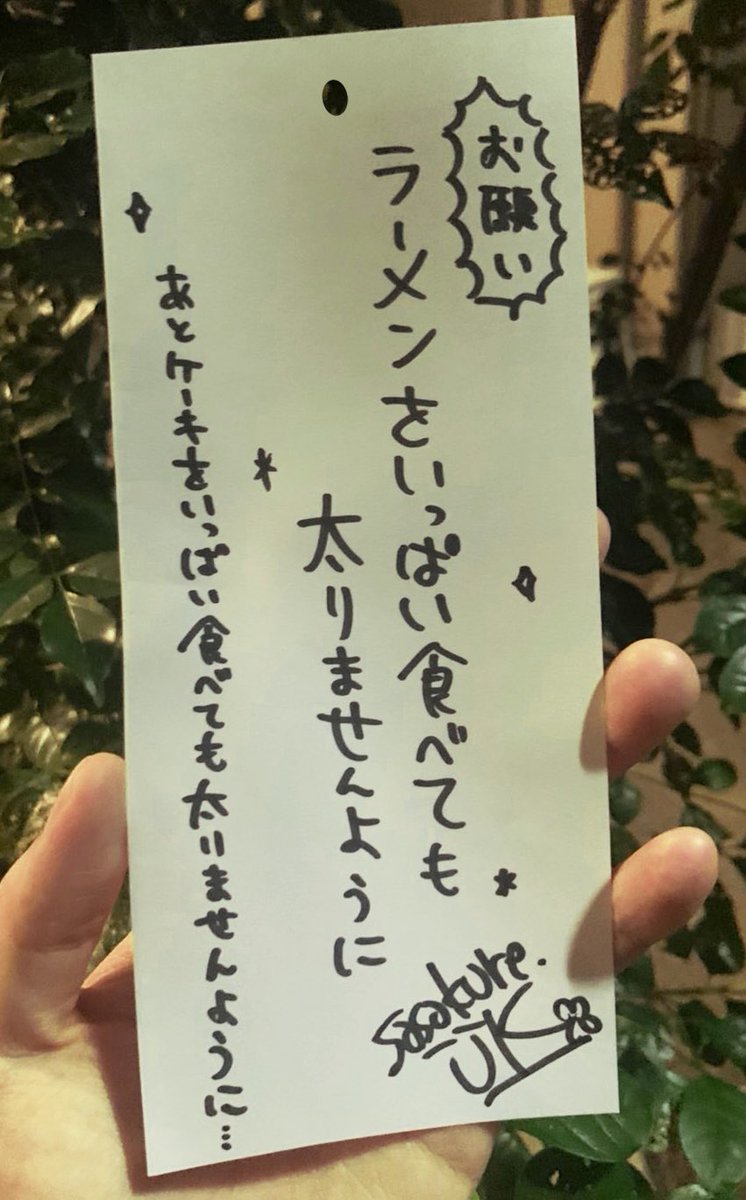 お願い
ラーメンをいっぱい食べても
太りませんように
あとケーキをいっぱい食べても太りませんように…